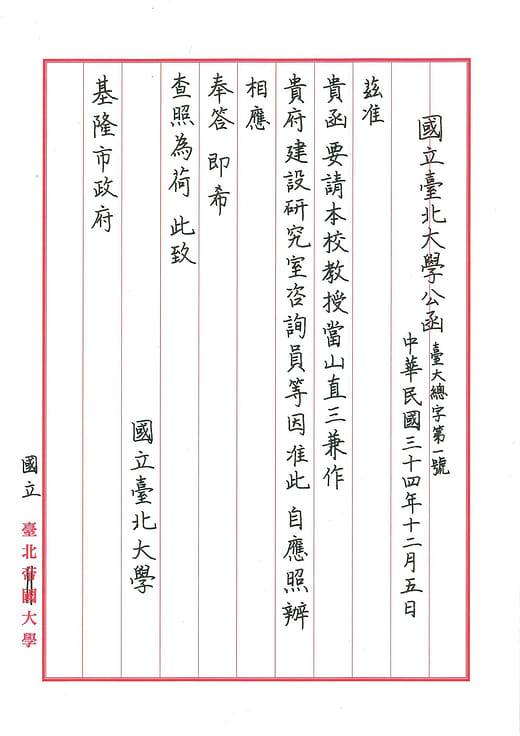 國立臺北大學公函 臺大總字第一號
中華民國三十四年十二月五日
茲准
貴函要請本校教授當山直三兼作
貴府建設研究室咨詢員等因准此 自應照辦
相應
奉答 即希
查照為荷 此致
國立臺北大學
基隆市政府
國立 臺北帝國大學